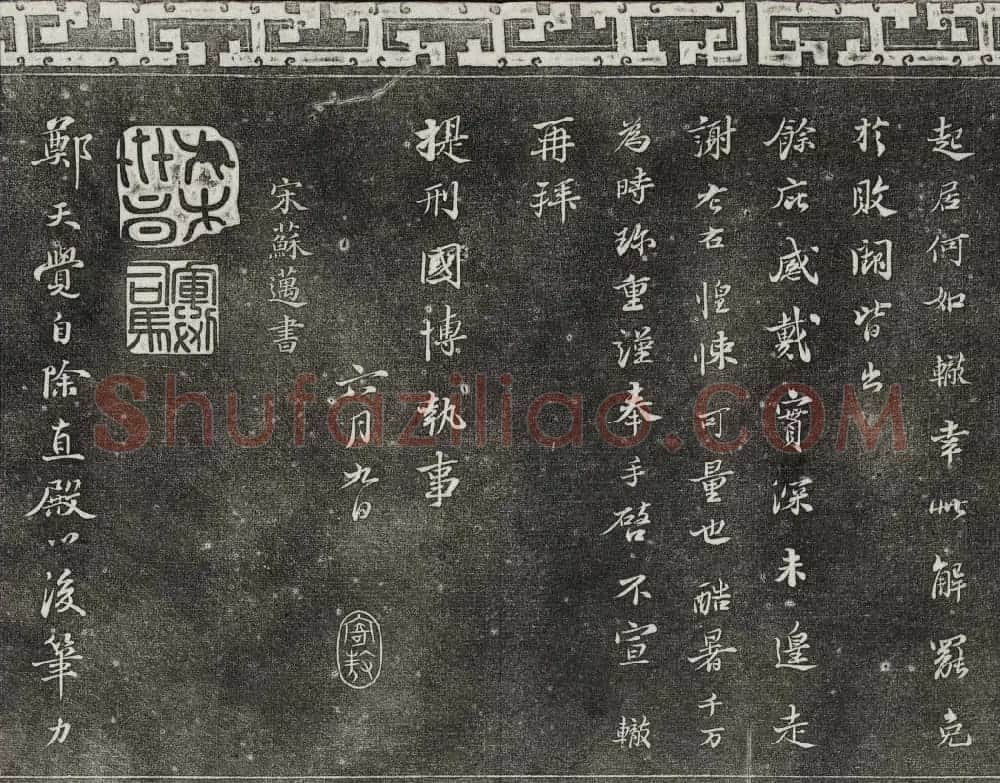 起居何如轍幸此解罷免
於敗闕皆出
餘庇感戴實深未遑走
謝左右惶悚可量也酷暑千万
為時珎重謹奉手啓不宣 轍
再拜
提刑國博執事
六月九日
宋蘇邁書
鄭天覺自除直殿以後筆力
Shufaziliao.COM